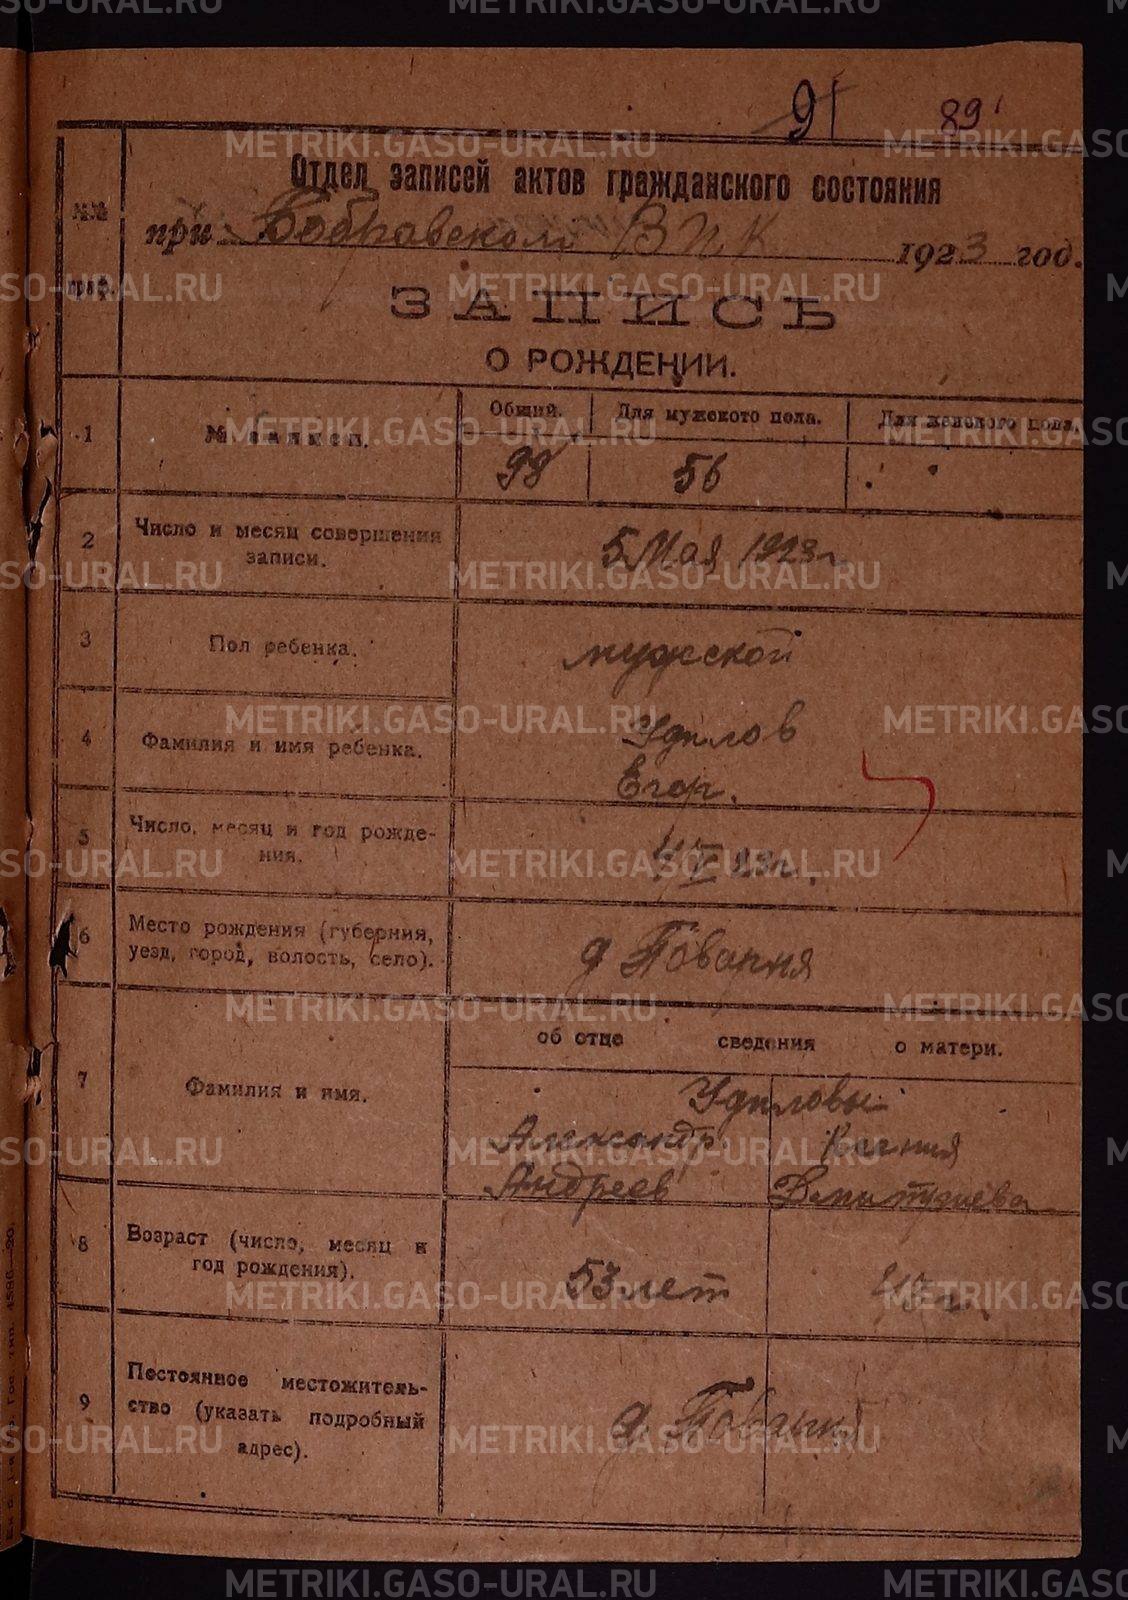 91 89
Отдел записей актов гражданского состояния
№№
при Бобравском ВИК 1923 год.
граф.
ЗАПИСЬ
О РОЖДЕНИИ.
1 № записи. Общий. Для мужского пола. Для женского пола.
98 56
2 Число и месяц совершения
записи.
5 Мая 1923 г
3 Пол ребенка. мужской
4 Фамилия и имя ребенка. Удилов
Егор.
5 Число, месяц и год рожде-
ния.
4/V 23 г.
6 Место рождения (губерния,
уезд, город, волость, село).
д Поварня
об отце сведения о матери.
7 Фамилия и имя. Удиловы
Александр
Андреев Дмитриева
8 Возраст (число, месяц и
год рождения).
53 лет 43 г.
9 Постоянное местожитель-
ство (указать подробный
адрес).
д. Поварня
METRIKI.GASO-URAL.RU